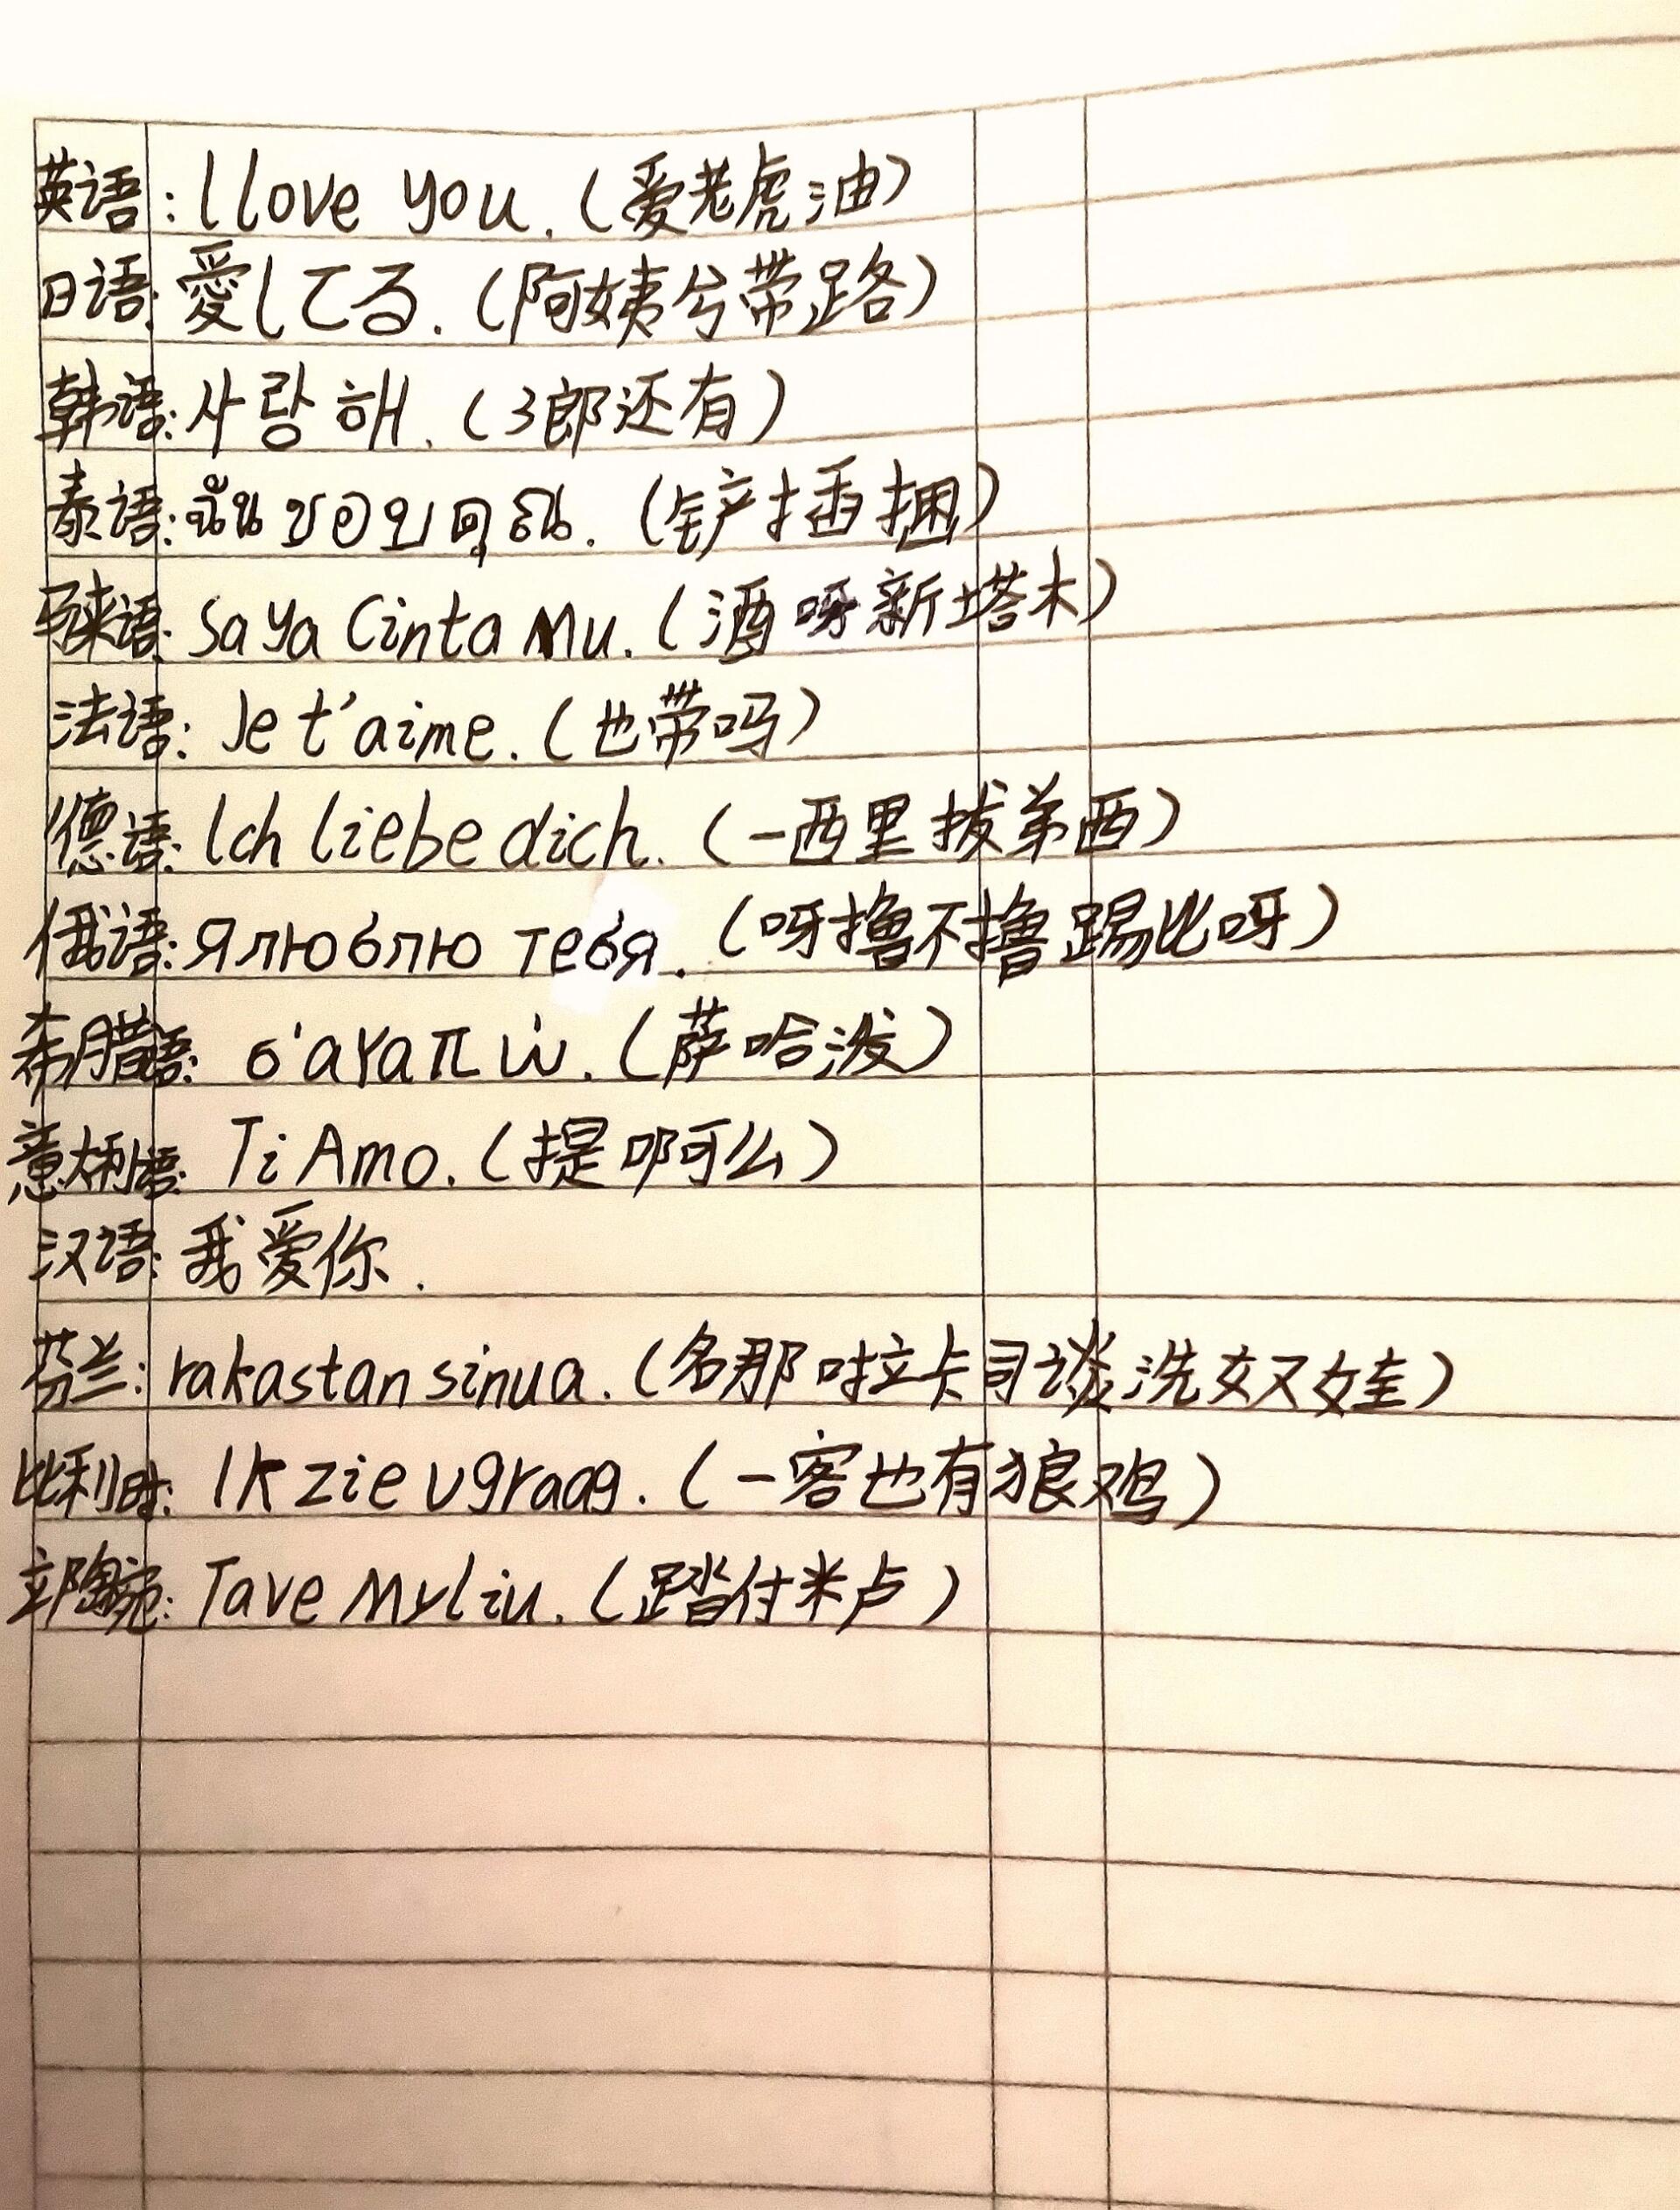 英语: I love you.(爱老虎油)
日语: 愛してる.(阿姨兮带路)
韩语: 사랑해.(3郎还有)
泰语: ฉันชอบคุณ.(铲插捆)
马来语: Saya Cinta Mu.(酒呀新塔木)
法语: Je t'aime.(也带吗)
德语: Ich liebe dich.(一西里拔弟西)
俄语: Я люблю тебя.(呀撸不撸踢比呀)
希腊语: σ'αγαπώ.(萨哈泼)
意大利语: Ti Amo.(提啊么)
汉语: 我爱你.
芬兰: rakastan sinua.(名那啦卡司谈洗奴娃)
比利时: Ik zie u graag.(一客也有狼鸡)
立陶宛: Tave Myliu.(踏付米卢)